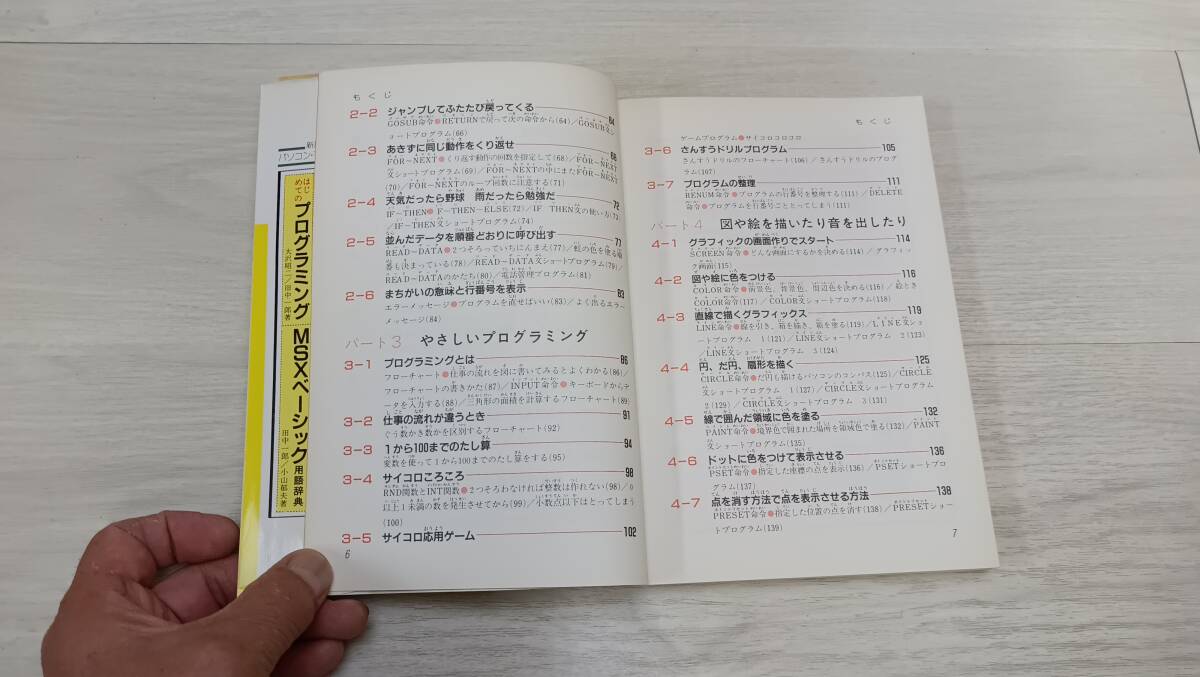 新
パソコン・
はじめての
プログラミング
大沢昭二/田中一郎著
MSXベーシック
用語辞典
田中一郎/小山郁夫著
もくじ
2-2 ジャンプしてふたたび戻ってくる 64
GOSUB命令●RETURNで戻って次の命令から(64)/GOSUB文シ
ョートプログラム(66)
2-3 あきずに同じ動作をくり返せ 68
FOR~NEXT●くり返す動作の回数を指定して(68)/FOR~NEXT
文ショートプログラム(69)/FOR~NEXTの中にまたFOR~NEXT
(70)/FOR~NEXTのループ回数に注意する(71)
2-4 天気だったら野球 雨だったら勉強だ 72
IF~THEN●F~THEN~ELSE(72)/IF THEN文の使い方(73)
/IF~THEN文ショートプログラム(74)
2-5 並んだデータを順番どおりに呼び出す 77
READ~DATA●2つそろっていちにんまえ(77)/虹の色を塗る順
番も決まっている(78)/READ~DATA文ショートプログラム(79)/
READ~DATAのかたち(80)/電話管理プログラム(81)
2-6 まちがいの意味と行番号を表示 83
エラーメッセージ●プログラムを直せばいい(83)/よく出るエラー
メッセージ(84)
パート3 やさしいプログラミング
3-1 プログラミングとは 86
フローチャート●仕事の流れを図に書いてみるとよくわかる(86)/
フローチャートの書きかた(87)/INPUT命令●キーボードからデ
ータを入力する(88)/三角形の面積を計算するフローチャート(89)
3-2 仕事の流れが違うとき 91
ぐう数かき数かを区別するフローチャート(92)
3-3 1から100までのたし算 94
変数を使って1から100までのたし算をする(95)
3-4 サイコロころころ 98
RND関数とINT関数●2つそろわなければ整数は作れない(98)/0
以上1未満の数を発生させてから(99)/小数点以下はとってしまう
(100)
3-5 サイコロ応用ゲーム 102
6
もくじ
ゲームプログラム●サイコロコロコロ
3-6 さんすうドリルプログラム 105
さんすうドリルのフローチャート(106)/さんすうドリルのプログ
ラム(107)
3-7 プログラムの整理 111
RENUM命令●プログラムの行番号を整理する(111)/DELETE
命令●プログラムを行番号ごととってしまう(111)
パート4 図や絵を描いたり音を出したり
4-1 グラフィックの画面作りでスタート 114
SCREEN命令●どんな画面にするかを決める(114)/グラフィッ
ク画面(115)
4-2 図や絵に色をつける 116
COLOR命令●前景色、背景色、周辺色を決める(116)/絵とき
COLOR命令(117)/COLOR文ショートプログラム(118)
4-3 直線で描くグラフィックス 119
LINE命令●線を引き、箱を描き、箱を塗る(119)/LINE文ショ
ートプログラム 1(121)/LINE文ショートプログラム 2(123)
/LINE文ショートプログラム 3(124)
4-4 円、だ円、扇形を描く 125
CIRCLE命令●だ円も描けるパソコンのコンパス(125)/CIRCLE
文ショートプログラム 1(127)/CIRCLE文ショートプログラム
2(129)/CIRCLE文ショートプログラム 3(131)
4-5 線で囲んだ領域に色を塗る 132
PAINT命令●境界色で囲まれた場所を領域色で塗る(132)/PAINT
文ショートプログラム(135)
4-6 ドットに色をつけて表示させる 136
PSET命令●指定した座標の点を表示(136)/PSETショートプロ
グラム(137)
4-7 点を消す方法で点を表示させる方法 138
PRESET命令●指定した位置の点を消す(138)/PRESETショー
トプログラム(139)
7